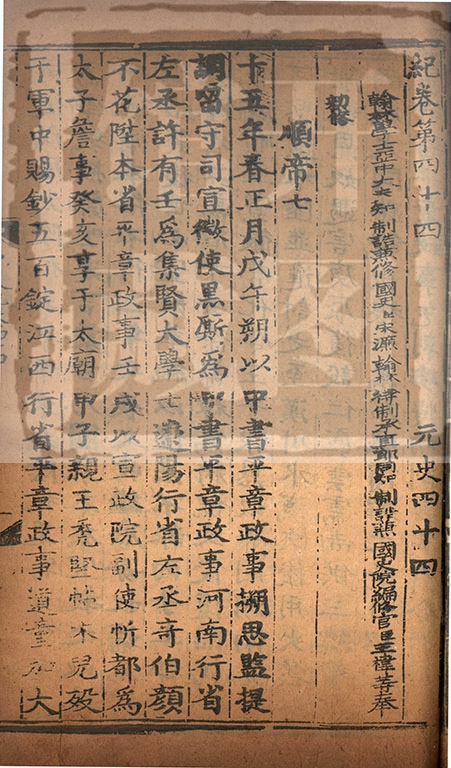 紀卷第四十四　元史四十四
翰林學士亞中大夫知制誥兼修國史臣宋濂翰林待制承直郎同知制誥兼國史院編修官臣王禕等奉
勑修
順帝七
十五年春正月戊午朔以中書平章政事搠思監提
調留守司宣徽使黑廝爲中書平章政事河南行省
左丞許有壬爲集賢大學士遼陽行省左丞奇伯顏
不花陞本省平章政事壬戌以宣政院副使忻都爲
太子詹事癸亥享于太廟甲子親王禿堅帖木兒歿
于軍中賜鈔五百錠江西行省平章政事道童加大